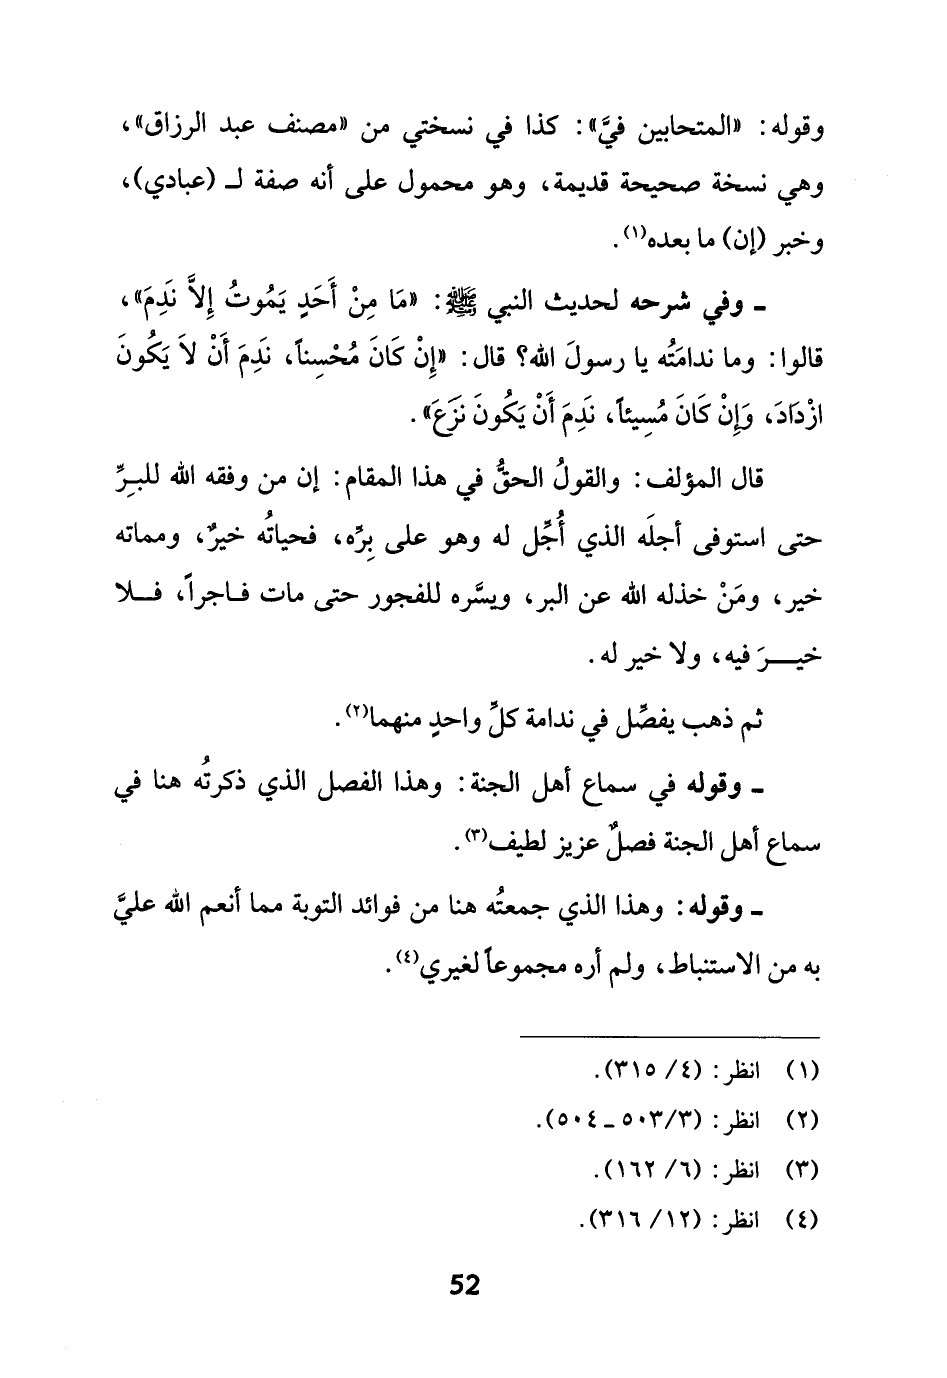 وقوله: «المتحابين فيَّ»: كذا في نسختي من «مصنف عبد الرزاق»،
وهي نسخة صحيحة قديمة، وهو محمول على أنه صفة لـ (عبادي)،
وخبر (إن) ما بعده(١).
ـ وفي شرحه لحديث النبي ﷺ: «مَا مِنْ أَحَدٍ يَمُوتُ إِلاَّ نَدِمَ»،
قالوا: وما ندامَتُه يا رسولَ الله؟ قال: «إِنْ كَانَ مُحْسِناً، نَدِمَ أَنْ لاَ يَكُونَ
ازْدَادَ، وَإِنْ كَانَ مُسِيئاً، نَدِمَ أَنْ يَكُونَ نَزَعَ».
قال المؤلف: والقولُ الحقُّ في هذا المقام: إن من وفقه الله للبـِرِّ
حتى استوفى أجلَه الذي أُجِّل له وهو على بِرِّه، فحياتُه خيرٌ، ومماته
خير، ومَنْ خذله الله عن البر، ويسَّره للفجور حتى مات فـاجراً، فــلا
خيـــرَ فيه، ولا خير له.
ثم ذهب يفصِّل في ندامة كلِّ واحدٍ منهما(٢).
ـ وقوله في سماع أهل الجنة: وهذا الفصل الذي ذكرتُه هنا في
سماع أهل الجنة فصلٌ عزيز لطيف(٣).
ـ وقوله: وهذا الذي جمعتُه هنا من فوائد التوبة مما أنعم الله عليَّ
به من الاستنباط، ولم أره مجموعاً لغيري(٤).
(١) انظر: (٤/ ٣١٥).
(٢) انظر: (٣/ ٥٠٣ ـ ٥٠٤).
(٣) انظر: (٦/ ١٦٢).
(٤) انظر: (١٢/ ٣١٦).
52